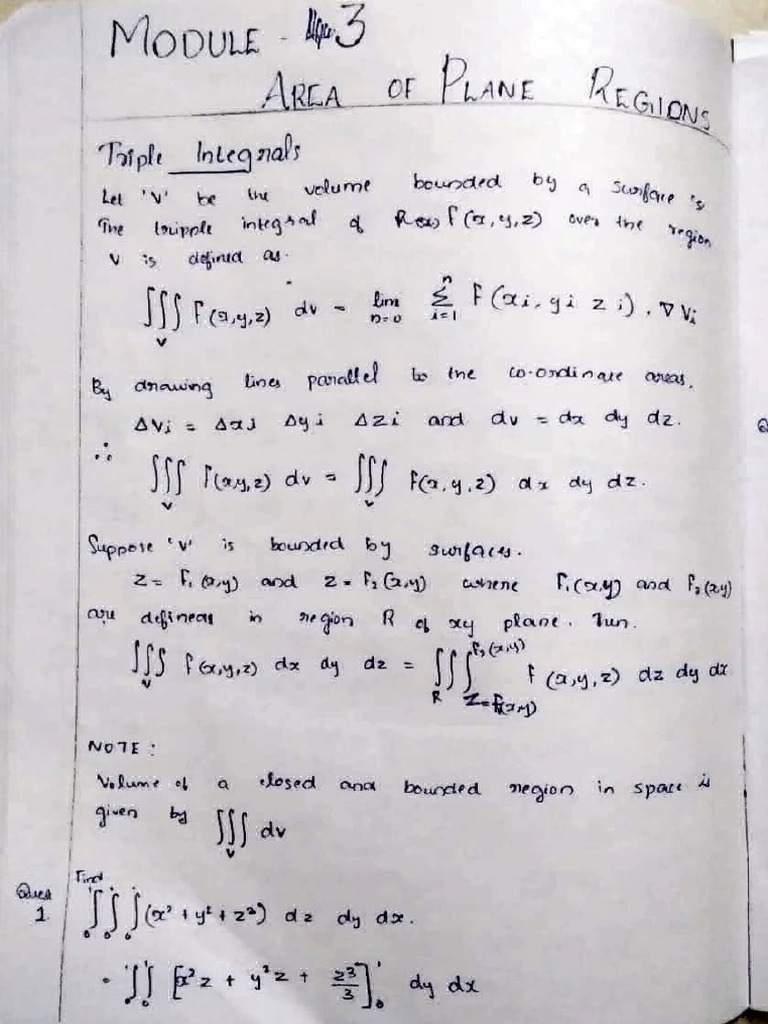 MODULE - 3
AREA OF PLANE REGIONS
Triple Integrals
Let 'V' be the volume bounded by a surface 's
The tripple integral of f(x,y,z) over the region
V is defined as.
∫∫∫_V F(x,y,z) dv = lim_{n=0} Σ_{i=1}^{n} F(xi, yi zi). ∇Vi
By drawing lines parallel to the co-ordinate areas.
ΔVi = Δxi Δyi Δzi and dv = dx dy dz.
∴
∫∫∫_V F(x,y,z) dv = ∫∫∫_V F(x,y,z) dx dy dz.
Suppose 'V' is bounded by surfaces.
Z = F₁(x,y) and Z = F₂(x,y) where F₁(x,y) and F₂(x,y)
are defined in region R of xy plane. Then.
∫∫∫_V F(x,y,z) dx dy dz = ∫∫_R ∫_{Z=F₁(x,y)}^{F₂(x,y)} F(x,y,z) dz dy dx
NOTE :
Volume of a closed and bounded region in space is
given by ∫∫∫_V dv
Quest Find
1. ∫₀¹ ∫₀¹ ∫₀¹ (x² + y² + z²) dz dy dx.
= ∫₀¹ ∫₀¹ [x²z + y²z + z³/3]₀¹ dy dx